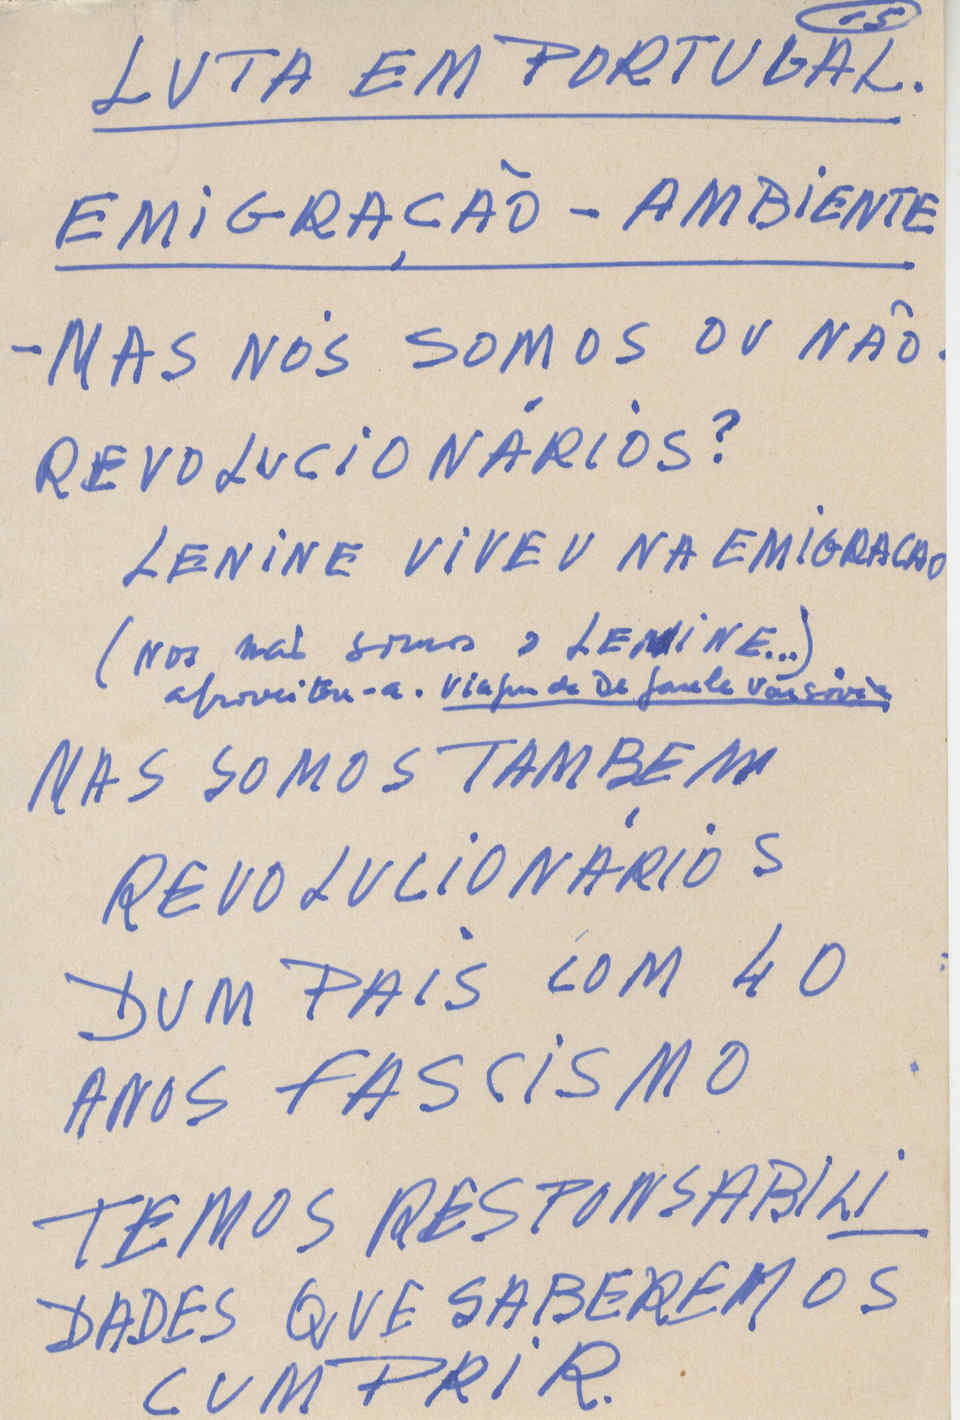 15
LUTA EM PORTUGAL.
EMIGRAÇÃO - AMBIENTE
- MAS NÓS SOMOS OU NÃO
REVOLUCIONÁRIOS?
LENINE VIVEU NA EMIGRACAO
(Nos não somos o LENINE...)
aproveitou-a. Viagem de De Gaule Varsóvia
MAS SOMOS TAMBEM
REVOLUCIONÁRIOS
DUM PAÍS COM 40
ANOS FASCISMO
TEMOS RESPONSABILI
DADES QUE SABEREMOS
CUMPRIR.